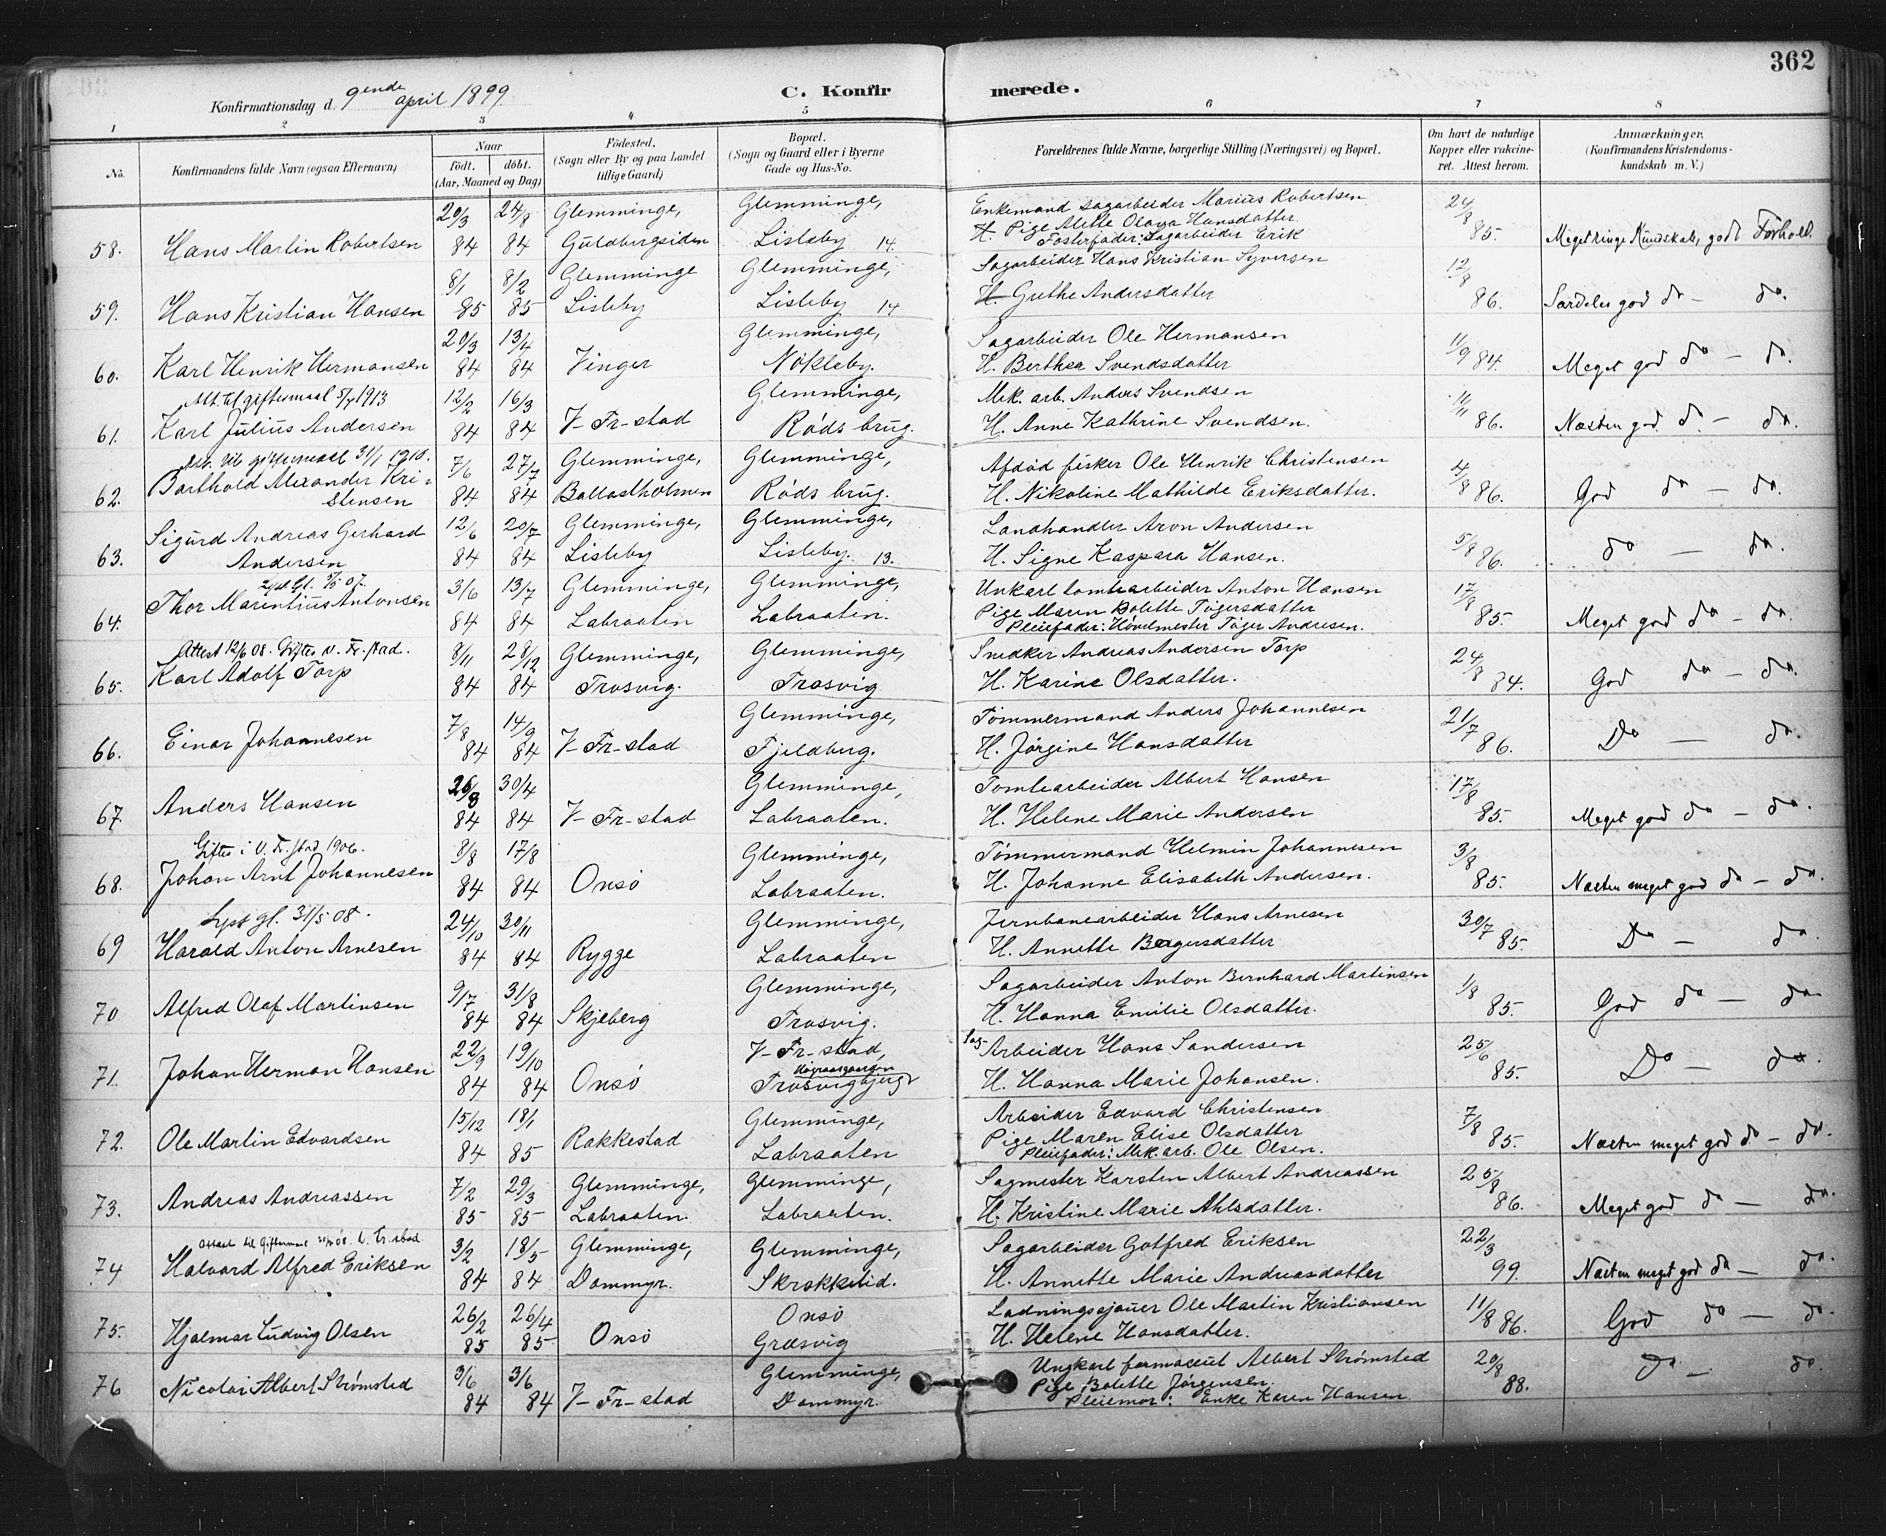 362
Konfirmationsdag d. 9ende april 1899
C. Konfirmerede.
1 2 3 4 5 6 7 8
No.
Konfirmandens fulde Navn (ogsaa Efternavn)
Naar
født. døbt.
(Aar, Maaned og Dag)
Fødested.
(Sogn eller By og paa Landet
tillige Gaard)
Bopæl.
(Sogn og Gaard eller i Byerne
Gade og Hus-No.
Forældrenes fulde Navne, borgerlige Stilling (Næringsvei) og Bopæl.
Om havt de naturlige
Kopper eller vakcine-
ret. Attest herom.
Anmærkninger.
(Konfirmandens Kristendoms-
kundskab m. V.)
20/3 24/8 Glemminge, Glemminge, Enkemand Sagarbeider Marius Robertsen 24/8
H. Pige Mette Olava Hansdatter
58. Hans Martin Robertsen 84 84 Guldbergsiden Lisleby 14. Fosterfader: Sagarbeider Erik 85. Meget ringe Kundskab, godt Forhold.
8/1 8/2 Glemminge Glemminge, Sagarbeider Hans Kristian Syversen 12/8
59. Hans Kristian Hansen 85 85 Lisleby Lisleby 14 H. Grethe Andersdatter 86. Særdeles god do - do.
20/3 13/4 Glemminge, Sagarbeider Ole Hermansen 11/9
60. Karl Henrik Hermansen 84 84 Vinger Nøkleby. H. Berthea Svendsdatter 84. Meget god do - do.
Att. til giftermaal 5/7 1913 12/2 16/3 Glemminge, Mek. arb. Anders Svendsen 10/11
61. Karl Julius Andersen 84 84 V- Fr-stad Røds brug. H. Anne Kathrine Svendsen. 86. Næsten god do - do.
Att. til giftermaal 31/1 1910. 7/6 27/7 Glemminge, Glemminge, Afdød fisker Ole Henrik Christensen 4/8
62. Barthold Alexander Kri-
stensen 84 84 Ballastholmen Røds brug. H. Nikoline Mathilde Eriksdatter. 86. God do - do.
Sigurd Andreas Gerhard 12/6 20/7 Glemminge, Glemminge, Landhandler Aron Andersen 5/8
63. Andersen 84 84 Lisleby Lisleby. 13. H. Signe Kaspara Hansen. 86. do - do.
3/6 13/7 Glemminge, Glemminge, Unkarl tomtearbeider Anton Hansen 17/8
Pige Maren Bolette Tøgersdatter
64. Thor Marentius Antonsen 84 84 Labraaten Labraaten. Pleiefader: Høvelmester Tøger Andresen. 85. Meget god do - do.
Attest 12/6 08. Giftes V. Fr.stad. 8/11 28/12 Glemminge, Glemminge, Snedker Andreas Andersen Torp 24/8
65. Karl Adolf Torp 84 84 Trosvig. Trosvig H. Karine Olsdatter. 84. God do - do.
7/8 14/9 Glemminge, Tømmermand Anders Johannesen 21/7
66. Einar Johannesen 84 84 V- Fr-stad Fjeldberg. H. Jørgine Hansdatter 86. Do - do.
26/8 30/4 Glemminge, Tomtearbeider Albert Hansen 17/8
67. Anders Hansen 84 84 V- Fr-stad Labraaten. H. Helene Marie Andersen 85. Meget god do - do.
Giftes i V. Fr.stad 1906. 8/8 17/8 Glemminge, Tømmermand Helmin Johannesen 3/8
68. Johan Arnt Johannesen 84 84 Onsø Labraaten. H. Johanne Elisabeth Andersen. 85. Næsten meget god do - do.
Lyst gl. 31/5 08. 24/10 30/11 Glemminge, Jernbanearbeider Hans Arnesen 30/7
69 Harald Anton Arnesen 84 84 Rygge Labraaten H. Annette Bøgersdatter 85. Do - do
9/7 31/8 Glemminge, Sagarbeider Anton Bernhard Martinsen 1/8
70 Alfred Olaf Martinsen 84 84 Skjeberg Trosvig. H. Hanna Emilie Olsdatter. 85. God do - do
22/9 19/10 V- Fr-stad, Sag-Arbeider Hans Sandersen 25/6
71. Johan Herman Hansen 84 84 Onsø Trosvigbjerg H. Hanna Marie Johansen. 85. Do - do
15/12 18/1 Glemminge, Arbeider Edvard Christensen 7/8
Pige Maren Elise Olsdatter
72. Ole Martin Edvardsen 84 85 Rakkestad Labraaten Pleiefader: Mek. arb. Ole Olsen. 85. Næsten meget god do - do.
7/2 29/3 Glemminge, Glemminge, Sagmester Karsten Albert Andreassen 25/8
73. Andreas Andreassen 85 85 Labraaten. Labraaten. H. Kristine Marie Ahlsdatter. 86. Meget god do - do.
Attest til Giftermaal 08. V. Fr.stad 3/2 18/5 Glemminge, Glemminge, Sagarbeider Gotfred Eriksen 22/3
74 Halvard Alfred Eriksen 84 84 Dammyr. Skrakkelid. H. Annette Marie Andreasdatter 99. Næsten meget god do - do.
26/2 26/4 Onsø Ladningssjouer Ole Martin Kristiansen 11/8
75. Hjalmar Ludvig Olsen 85 85 Onsø Græsvig H. Helene Hansdatter. 86. God do - do.
3/6 3/6 Glemminge, Ungkarl farmaceut Albert Strømsted 20/8
Pige Bolette Jørgensen.
76 Nicolai Albert Strømsted 84 84 V- Fr-stad Dammyr. Pleiemor: Enke Karen Hansen 88. Do - do.